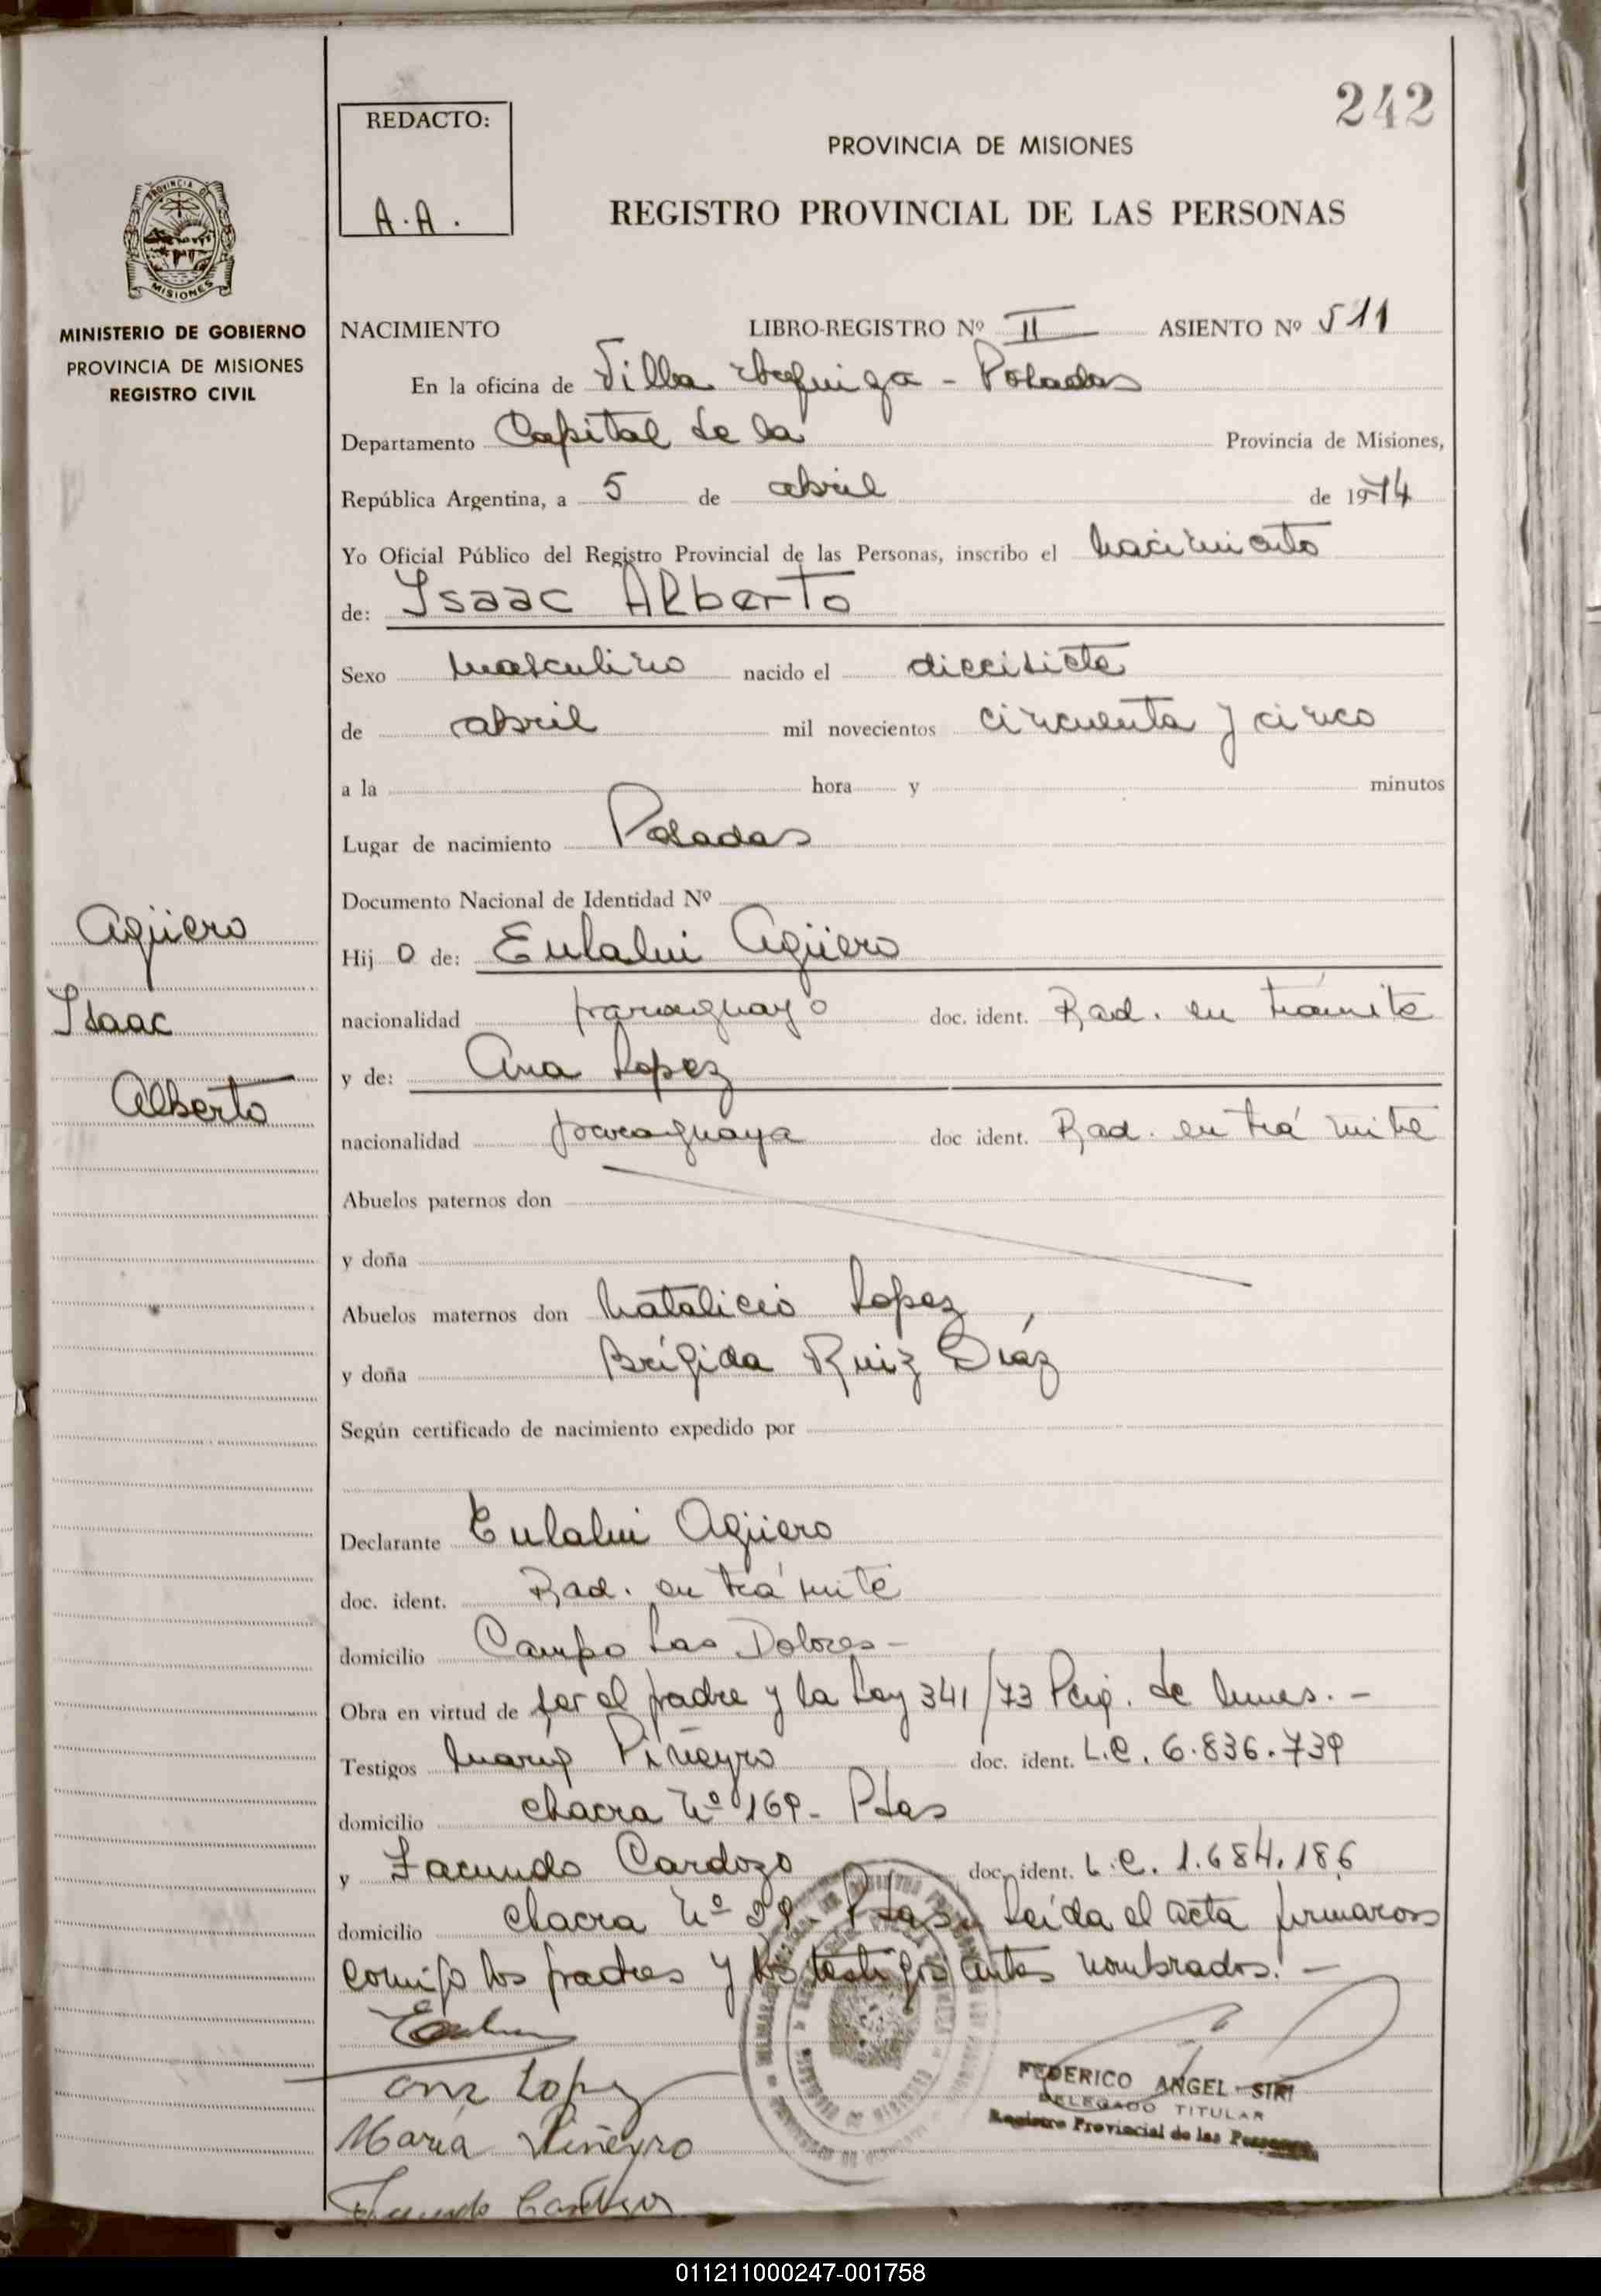 242
REDACTO:
A.A.
PROVINCIA DE MISIONES
REGISTRO PROVINCIAL DE LAS PERSONAS
PROVINCIA DE
MISIONES
MINISTERIO DE GOBIERNO
PROVINCIA DE MISIONES
REGISTRO CIVIL
NACIMIENTO LIBRO-REGISTRO Nº II ASIENTO Nº 511
En la oficina de Villa Urquiza - Posadas
Departamento Capital de la Provincia de Misiones,
República Argentina, a 5 de abril de 1974
Yo Oficial Público del Registro Provincial de las Personas, inscribo el nacimiento
de: Isaac Alberto
Sexo masculino nacido el diecisiete
de abril mil novecientos cincuenta y cinco
a la hora y minutos
Lugar de nacimiento Posadas
Documento Nacional de Identidad Nº
Agüero
Isaac
Alberto
Hij o de: Eulalui Agüero
nacionalidad paraguayo doc. ident. Rad. en trámite
y de: Ana Lopez
nacionalidad paraguaya doc ident. Rad. en trámite
Abuelos paternos don
y doña
Abuelos maternos don Natalicio Lopez,
y doña Brígida Ruiz Díaz
Según certificado de nacimiento expedido por
Declarante Eulalui Agüero
doc. ident. Rad. en trámite
domicilio Campo Las Dolores -
Obra en virtud de ser el padre y la Ley 341/73 de -
Testigos María Piñeyro doc. ident. L.C. 6.836.739
domicilio chacra Nº 169 - Pdas
y Facundo Cardozo doc. ident. L.E. 1.684.186
domicilio chacra Nº Pdas. Leída el acta firmaron
conmigo los padres y los testigos antes nombrados. -
Ana Lopez
María Piñeyro
Facundo Cardozo
FEDERICO ANGEL SIRI
DELEGADO TITULAR
Registro Provincial de las Personas
011211000247-001758